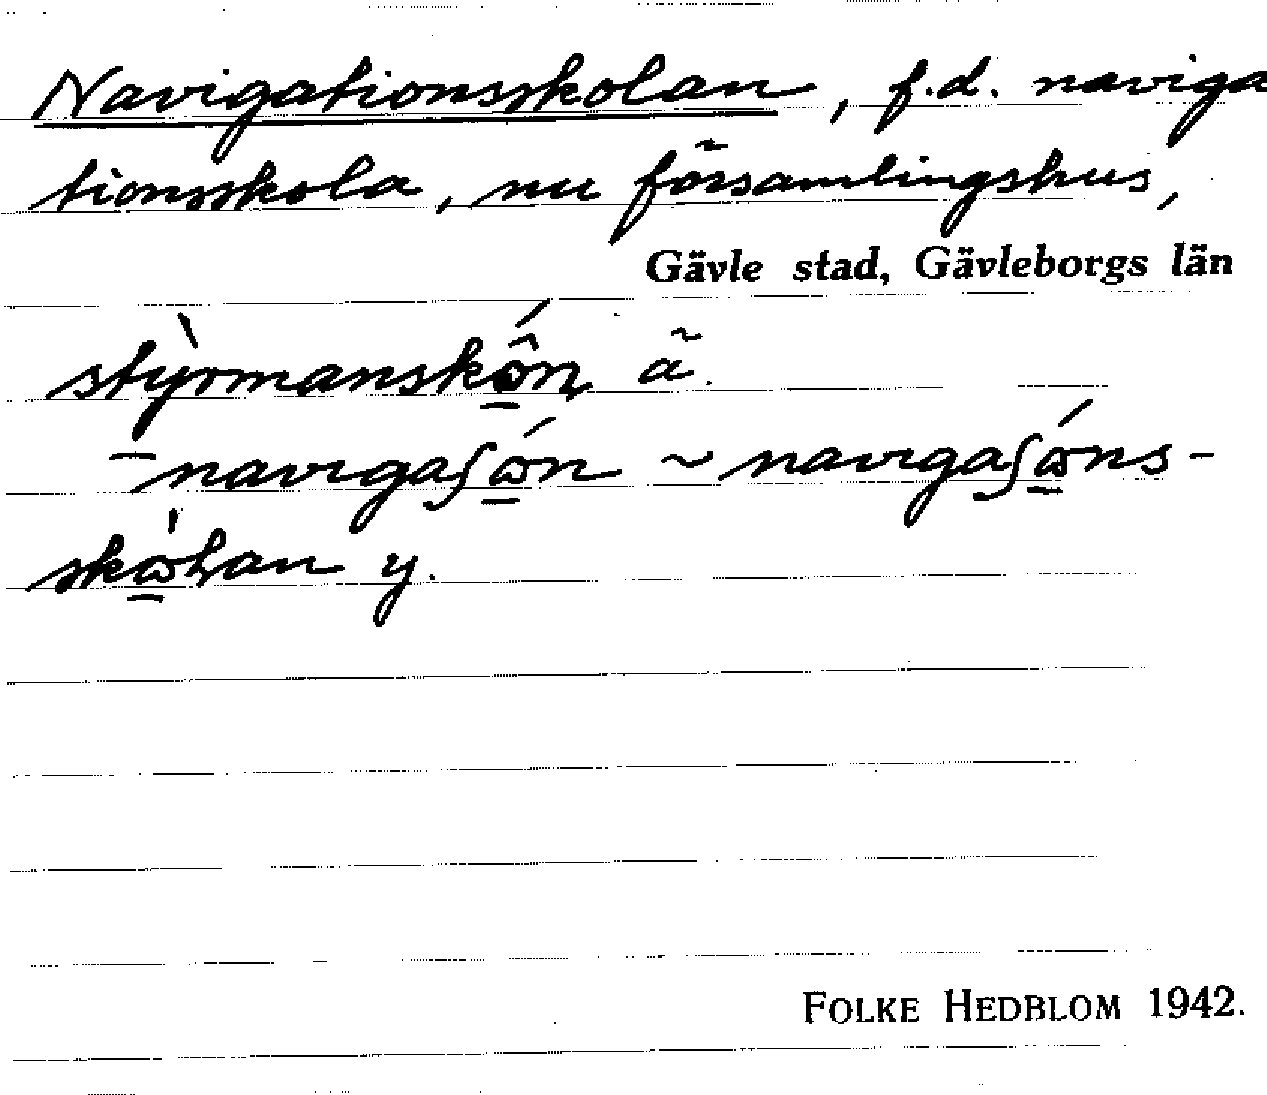 Navigationsskolan, f.d. naviga
tionsskola, nu församlingshus,
Gävle stad, Gävleborgs län
stỳrmanskɷ̂́n ä.
navigaʃɷ́n ~ navigaʃɷ́ns-
skɷ̀ɫan y.
FOLKE HEDBLOM 1942.